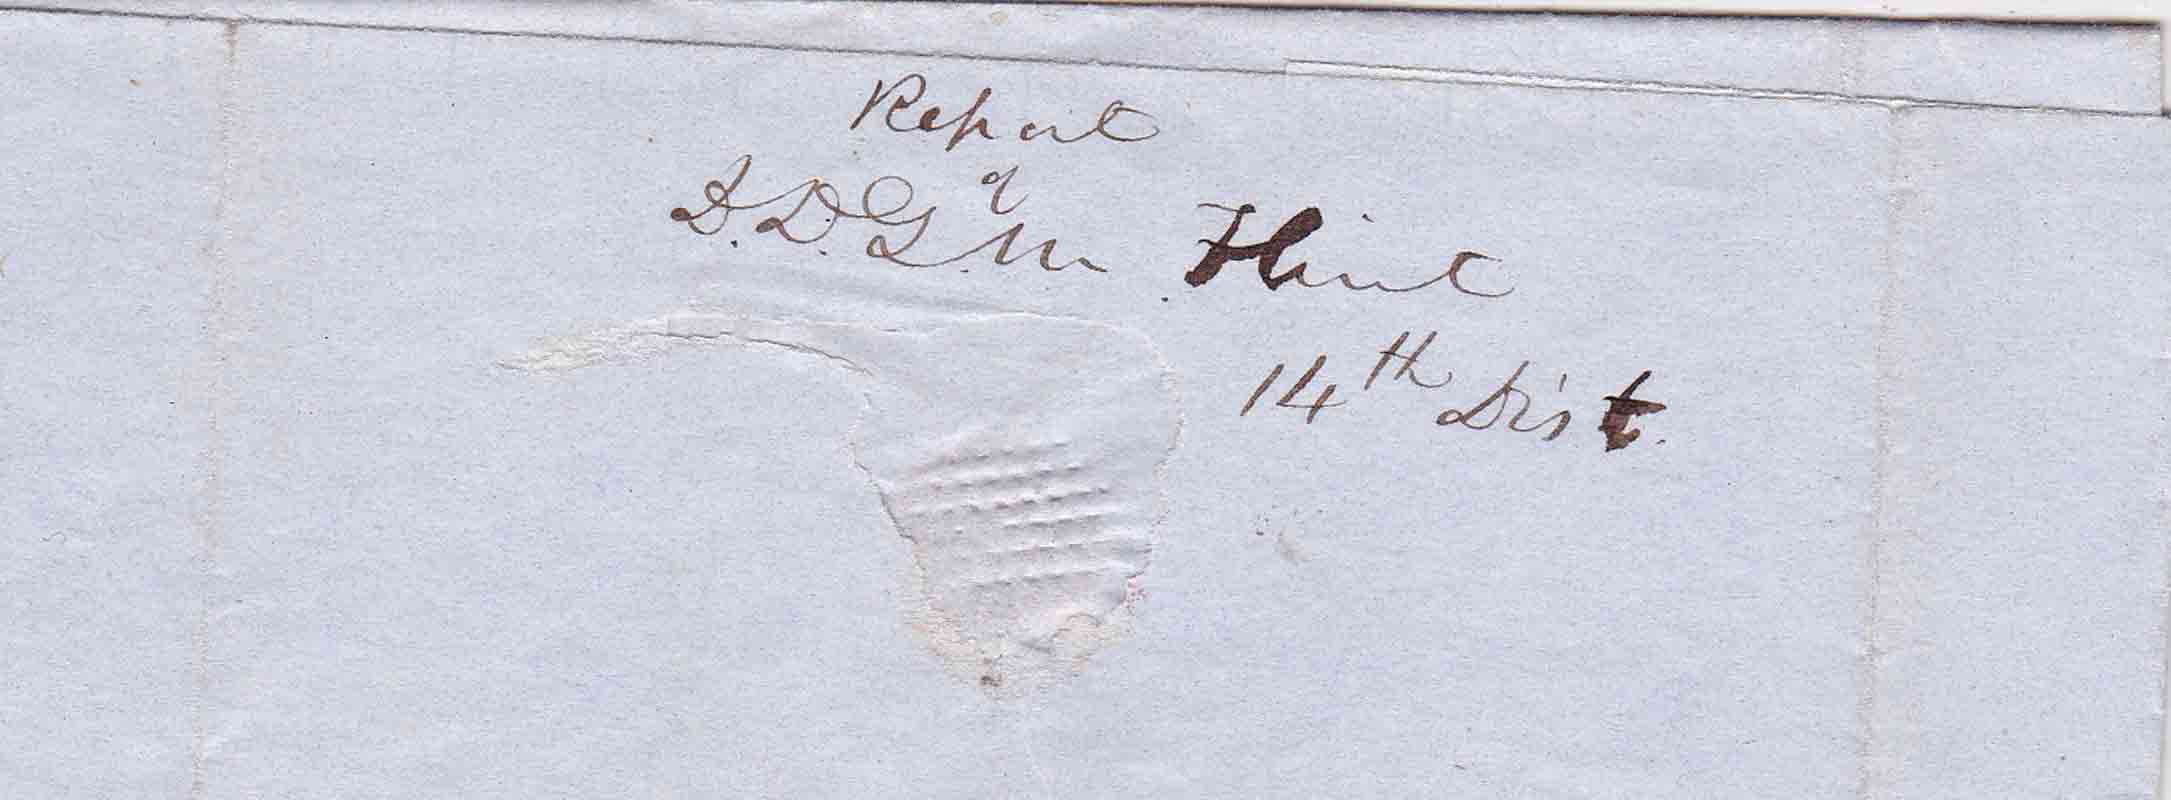 Report
of
D.D.G.M. Flint
14th Dist.